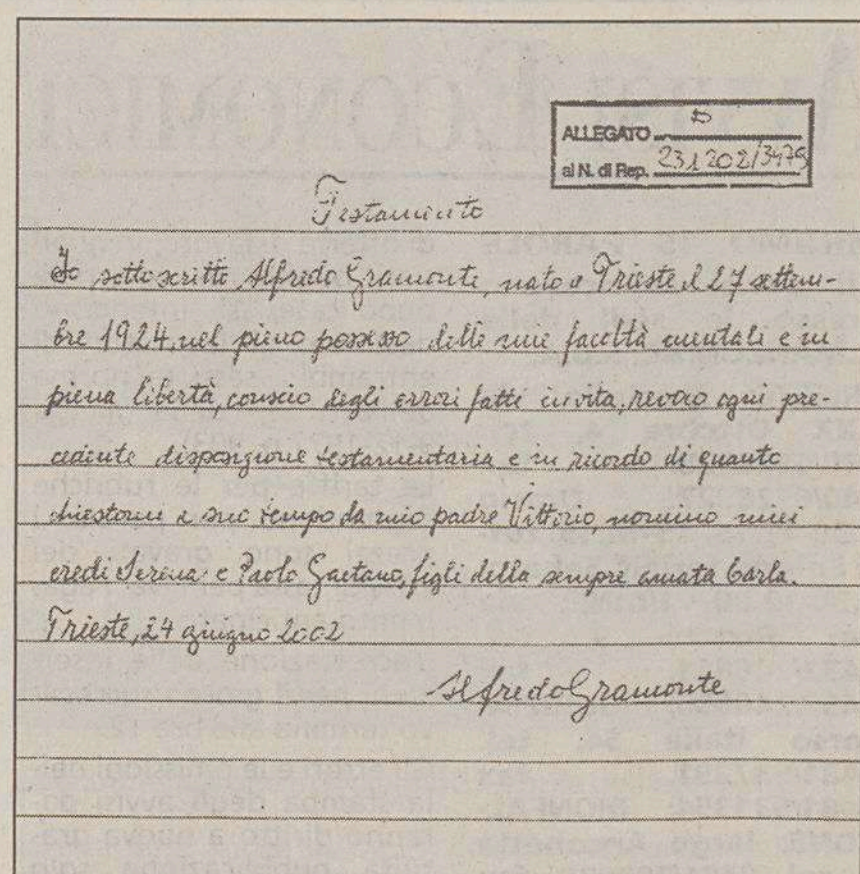 ALLEGATO D
al N. di Rep. 231202/3479
Testamento
Io sottoscritto Alfredo Gramonte, nato a Trieste il 27 settem-
bre 1924, nel pieno possesso delle mie facoltà mentali e in
piena libertà, conscio degli errori fatti in vita, revoco ogni pre-
cedente disposizione testamentaria e in ricordo di quanto
chiestomi a suo tempo da mio padre Vittorio, nomino miei
eredi Serena e Paolo Gaetano, figli della sempre amata Carla.
Trieste, 24 giugno 2002
Alfredo Gramonte